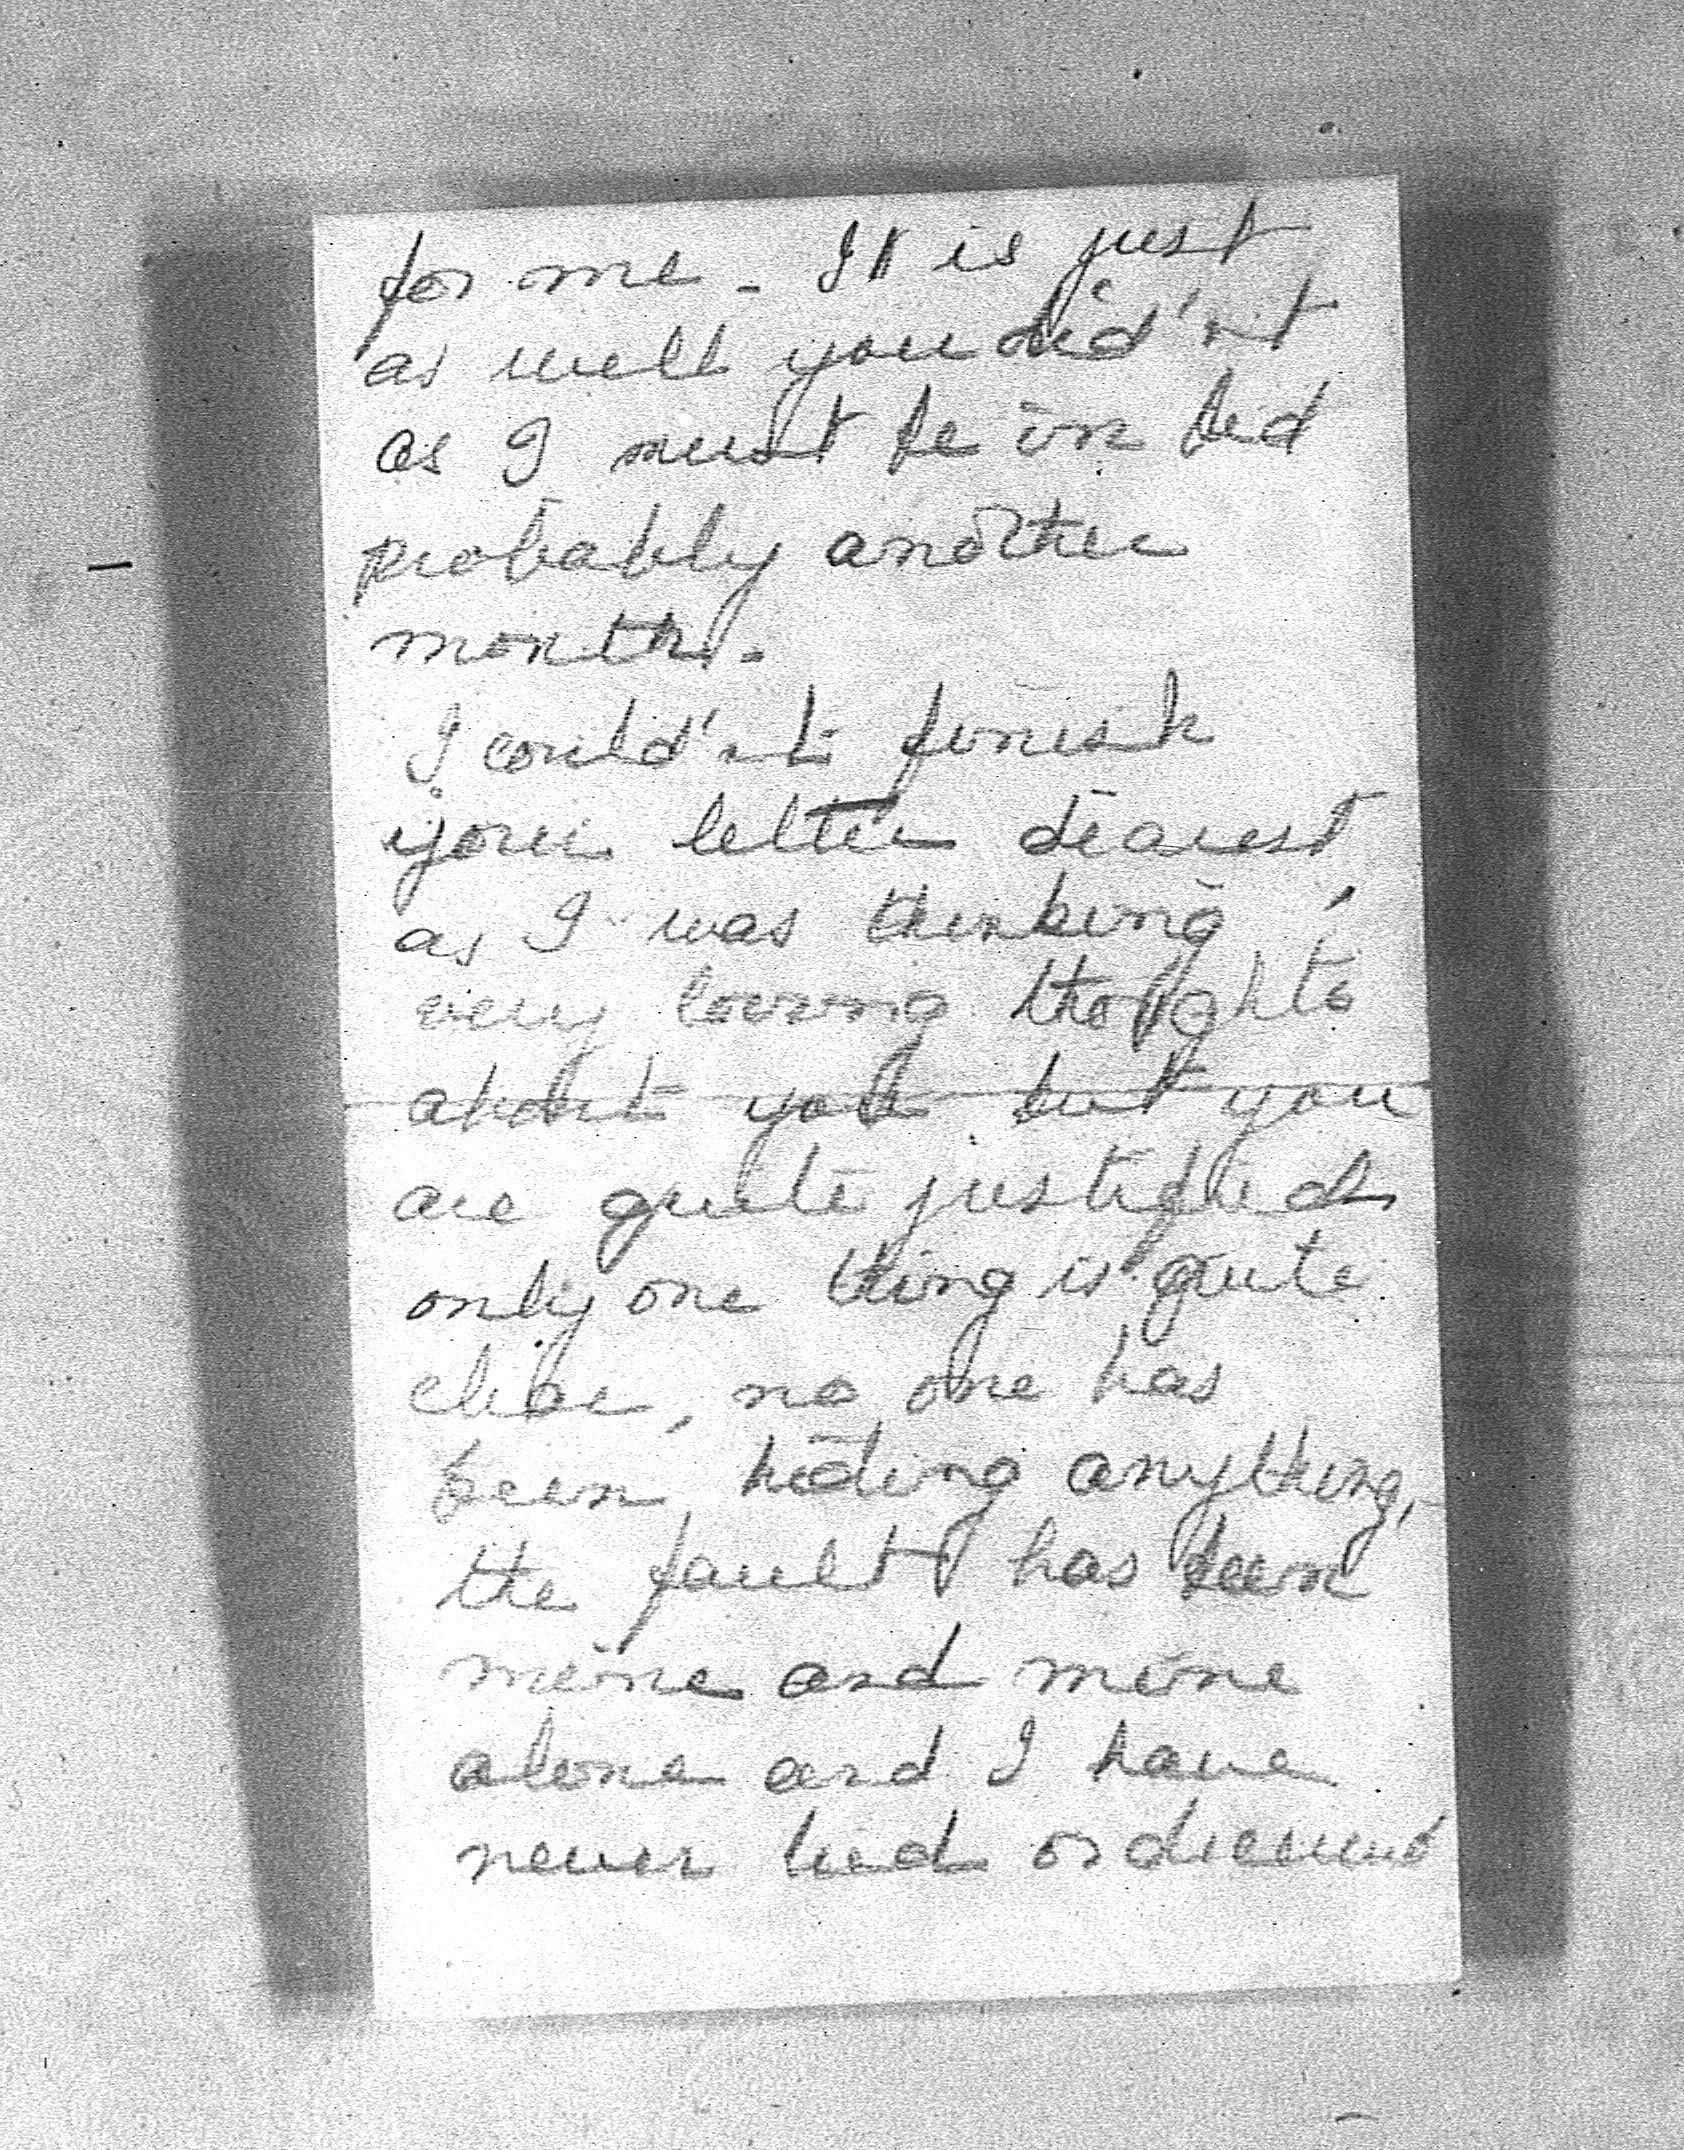 for me - It is just
as well you did'nt
as I must be in bed
probably another
month.
I could'nt finish
your letter dearest
as I was thinking
very loving thoughts
about you but you
are quite justified
only one thing is quite
clear, no one has
been hiding anything,
the fault has been
mine and mine
alone and I have
never lied or